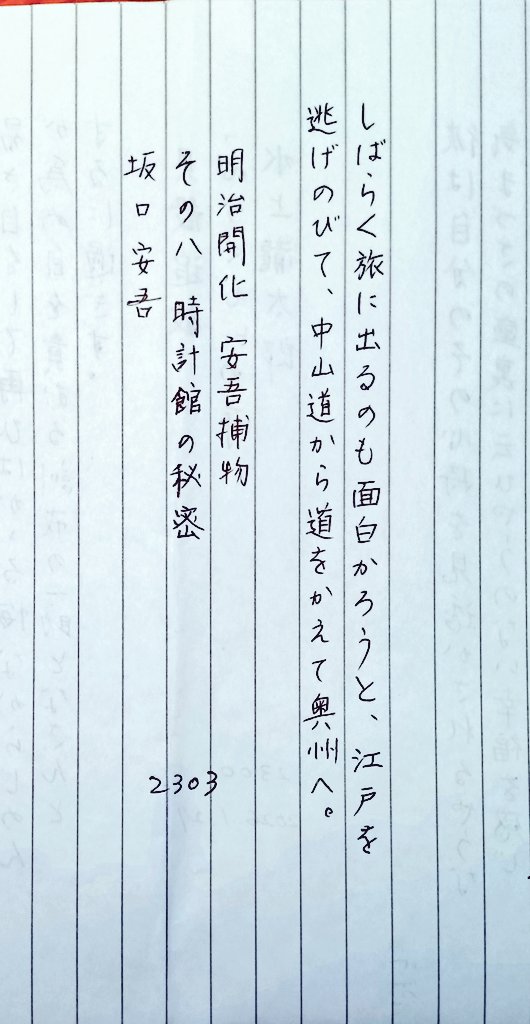 しばらく旅に出るのも面白かろうと、江戸を
逃げのびて、中山道から道をかえて奥州へ。
明治開化　安吾捕物
その八　時計館の秘密
坂口安吾
2303